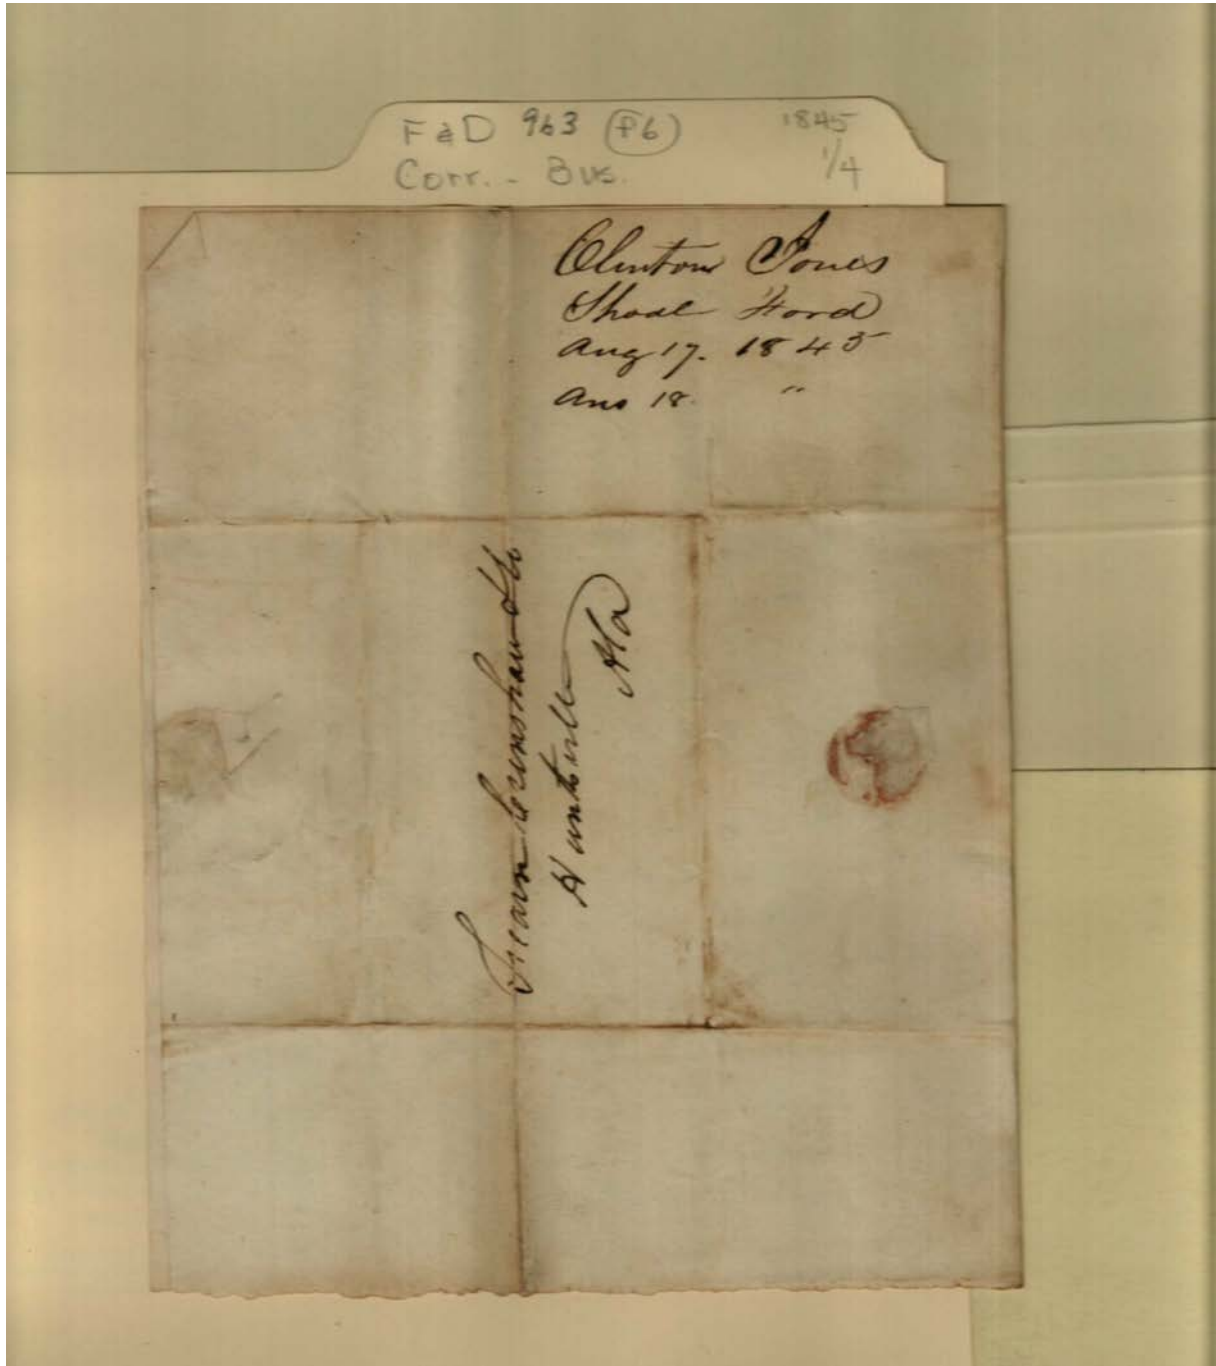 F & D 963 (F6) 1845
Corr. - Bus. 1/4
Clinton Jones
Shoal Ford
Aug 17. 1845
Ans 18. "
Fearn Crenshaw & Co
Huntsville
Ala